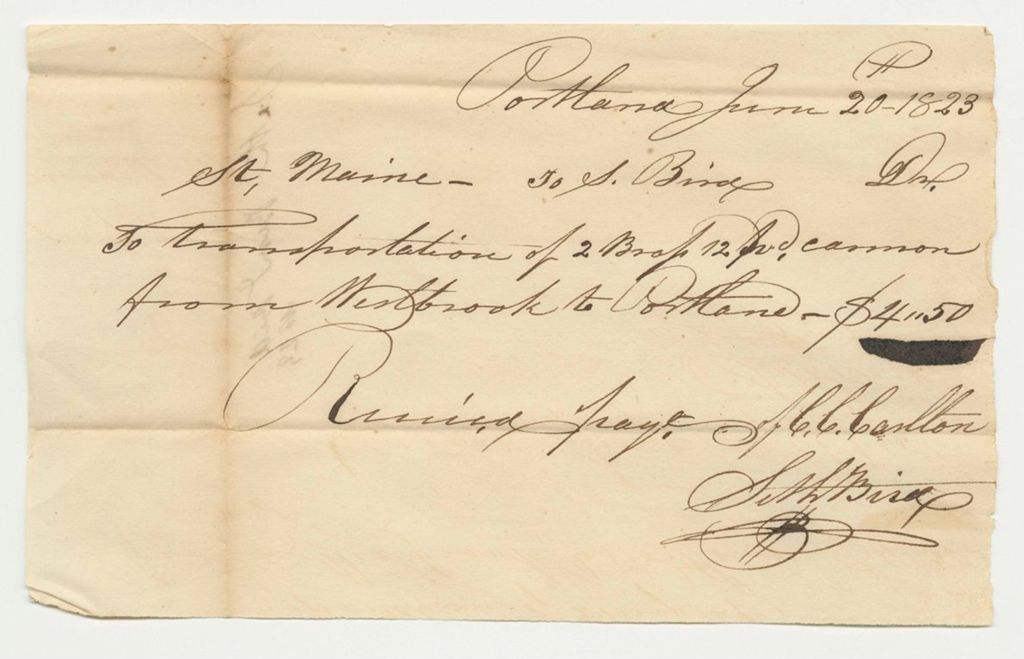 Portland June 20th 1823
St, Maine - To S. Bird Dr.
To transportation of 2 Brass 12 Pd. cannon
from Westbrook to Portland - $4"50
Received payt. of C. C. Carlton
Seth Bird